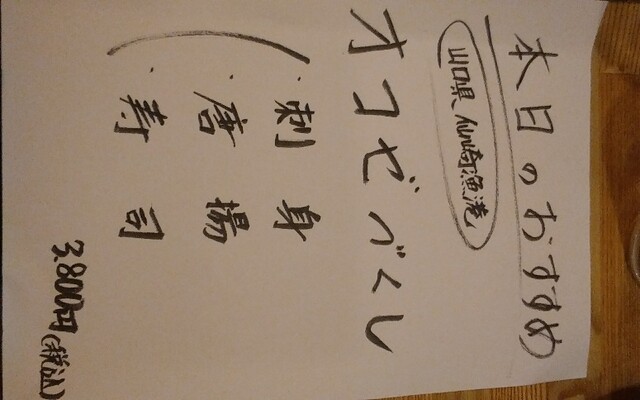 本日のおすすめ
山口県 仙崎漁港
オコゼづくし
・刺身
・唐揚
・寿司
3,800円(税込)